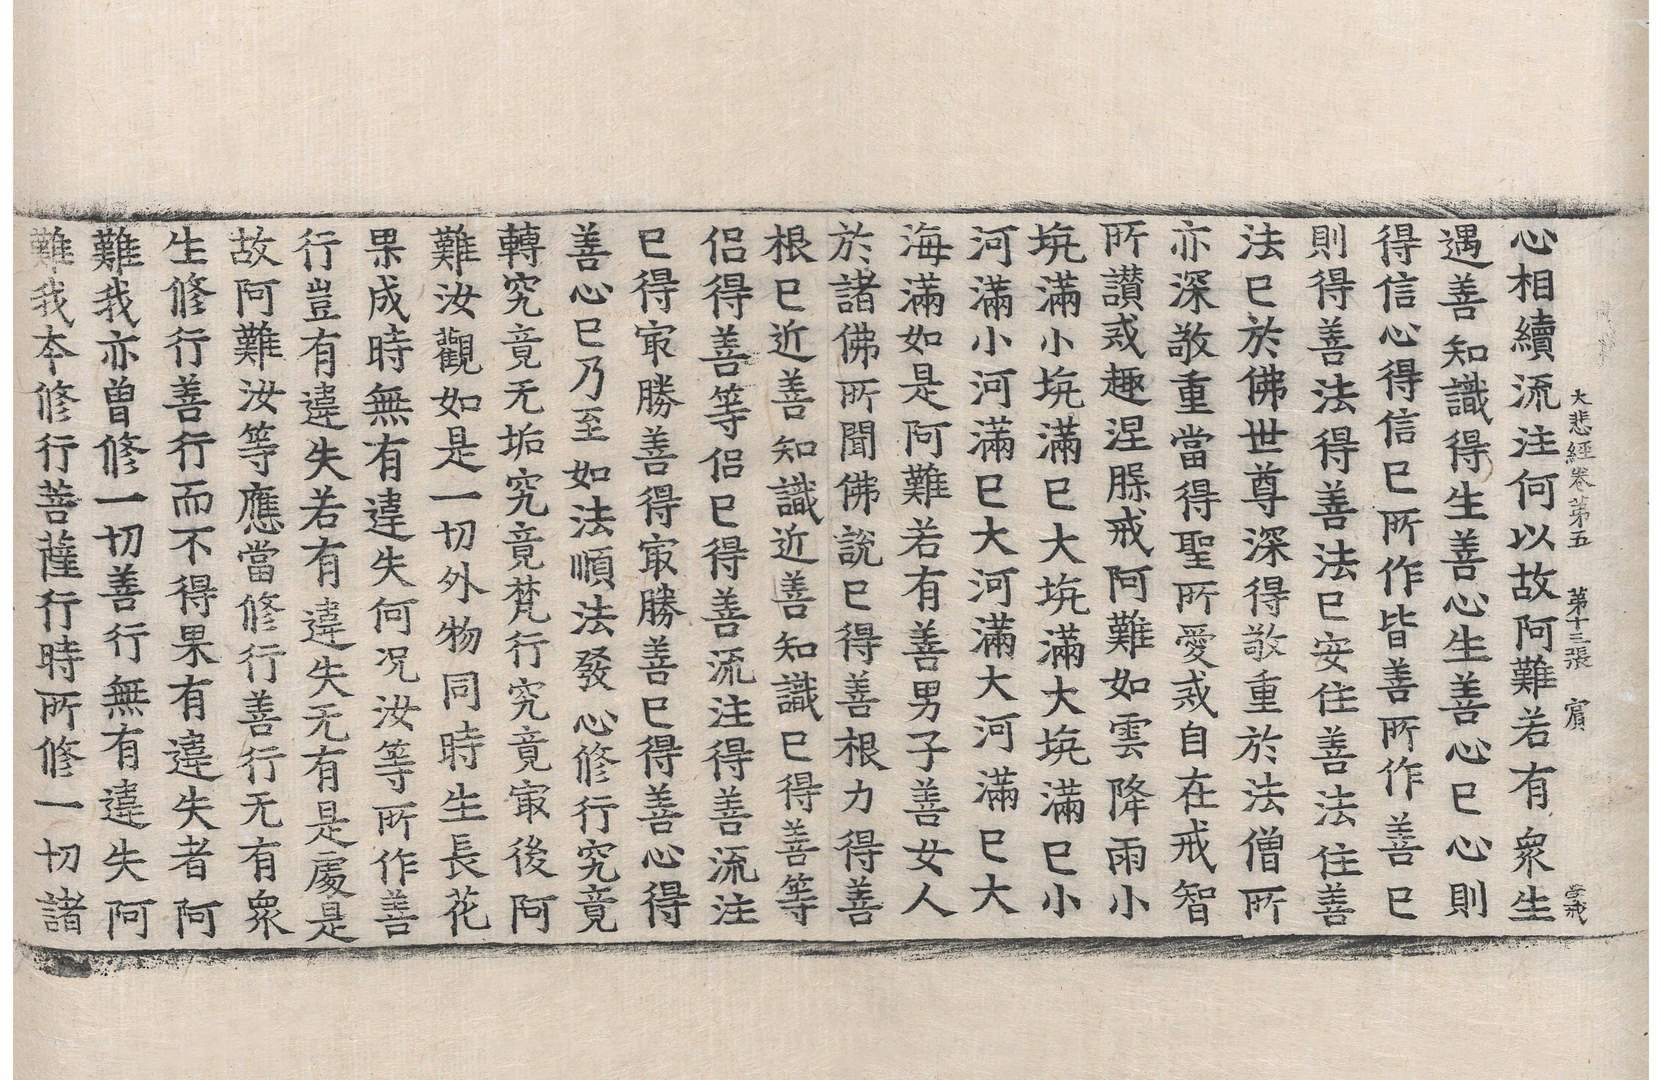 大悲經卷第五　第十三張　賓
心相續流注何以故阿難若有衆生
遇善知識得生善心生善心已心則
得信心得信已所作皆善所作善已
則得善法得善法已安住善法住善
法已於佛世尊深得敬重於法僧所
亦深敬重當得聖所愛戒自在戒智
所讃戒趣涅槃戒阿難如雲降雨小
坑滿小坑滿已大坑滿大坑滿已小
河滿小河滿已大河滿大河滿已大
海滿如是阿難若有善男子善女人
於諸佛所聞佛說已得善根力得善
根已近善知識近善知識已得善等
侣得善等侣已得善流注得善流注
已得㝡勝善得㝡勝善已得善心得
善心已乃至如法順法發心修行究竟
轉究竟无垢究竟梵行究竟㝡後阿
難汝觀如是一切外物同時生長花
果成時無有違失何况汝等所作善
行豈有違失若有違失无有是處是
故阿難汝等應當修行善行无有衆
生修行善行而不得果有違失者阿
難我亦曾修一切善行無有違失阿
難我本修行菩薩行時所修一切諸